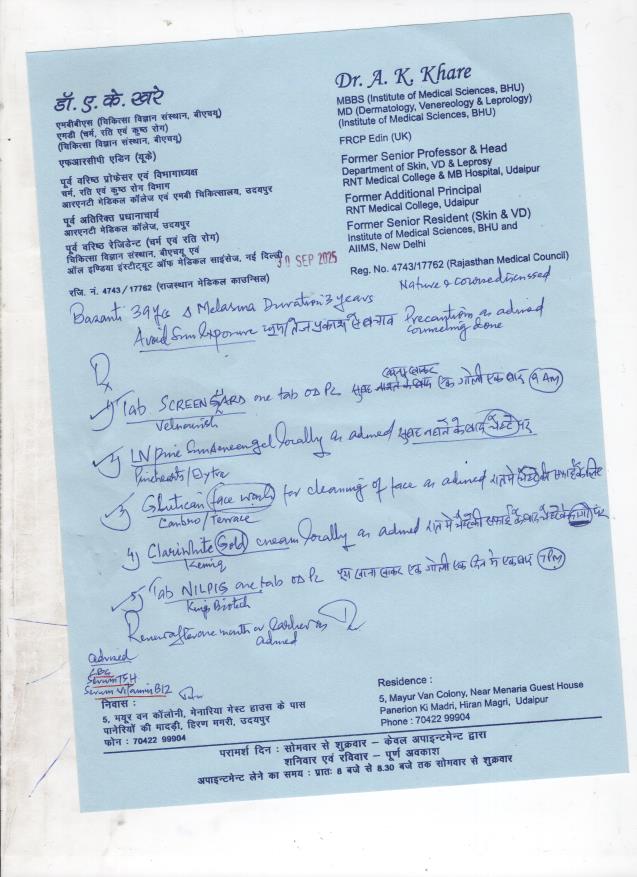 डॉ. ए. के. खरे
एमबीबीएस (चिकित्सा विज्ञान संस्थान, बीएचयू)
एमडी (चर्म, रति एवं कुष्ठ रोग)
(चिकित्सा विज्ञान संस्थान, बीएचयू)
एफआरसीपी एडिन (यूके)
पूर्व वरिष्ठ प्रोफेसर एवं विभागाध्यक्ष
चर्म, रति एवं कुष्ठ रोग विभाग
आरएनटी मेडिकल कॉलेज एवं एमबी चिकित्सालय, उदयपुर
पूर्व अतिरिक्त प्रधानाचार्य
आरएनटी मेडिकल कॉलेज, उदयपुर
पूर्व वरिष्ठ रेजिडेन्ट (चर्म एवं रति)
चिकित्सा विज्ञान संस्थान, बीएचयू एवं
ऑल इण्डिया इंस्टीट्यूट ऑफ मेडिकल साइंसेज, नई दिल्ली
रजि. नं. 4743/17762 (राजस्थान मेडिकल काउन्सिल)
Dr. A. K. Khare
MBBS (Institute of Medical Sciences, BHU)
MD (Dermatology, Venereology & Leprology)
(Institute of Medical Sciences, BHU)
FRCP Edin (UK)
Former Senior Professor & Head
Department of Skin, VD & Leprosy
RNT Medical College & MB Hospital, Udaipur
Former Additional Principal
RNT Medical College, Udaipur
Former Senior Resident (Skin & VD)
Institute of Medical Sciences, BHU and
AIIMS, New Delhi
Reg. No. 4743/17762 (Rajasthan Medical Council)
30 SEP 2025
Nature & course discussed
Basanti 39 yrs Δ Melasma Duration 3 years
Avoid Sun Exposure Precautions as advised
counseling done
Rx
1) Tab SCREENGARD one tab OD PC सुबह एक गोली एक बार (9 AM)
2) Sunscreen gel locally as advised सुबह नहाने के बाद चेहरे पर
3) face wash for cleaning of face as advised रात में
4) Clariwhite Gold cream locally as advised रात में
5) Tab NILPIG one tab OD PC खाना खाकर एक गोली एक दिन में एक बार (7 PM)
Kings Biotech
Renew after one month or earlier as
advised
advised
CBC
Serum TSH
Serum Vitamin B12
निवास :
5, मयूर वन कॉलोनी, मेनारिया गेस्ट हाउस के पास
पानेरियों की मादड़ी, हिरण मगरी, उदयपुर
फोन : 70422 99904
Residence :
5, Mayur Van Colony, Near Menaria Guest House
Panerion Ki Madri, Hiran Magri, Udaipur
Phone : 70422 99904
परामर्श दिन : सोमवार से शुक्रवार – केवल अपाइन्टमेन्ट द्वारा
शनिवार एवं रविवार – पूर्ण अवकाश
अपाइन्टमेन्ट लेने का समय : प्रातः 8 बजे से 8.30 बजे तक सोमवार से शुक्रवार